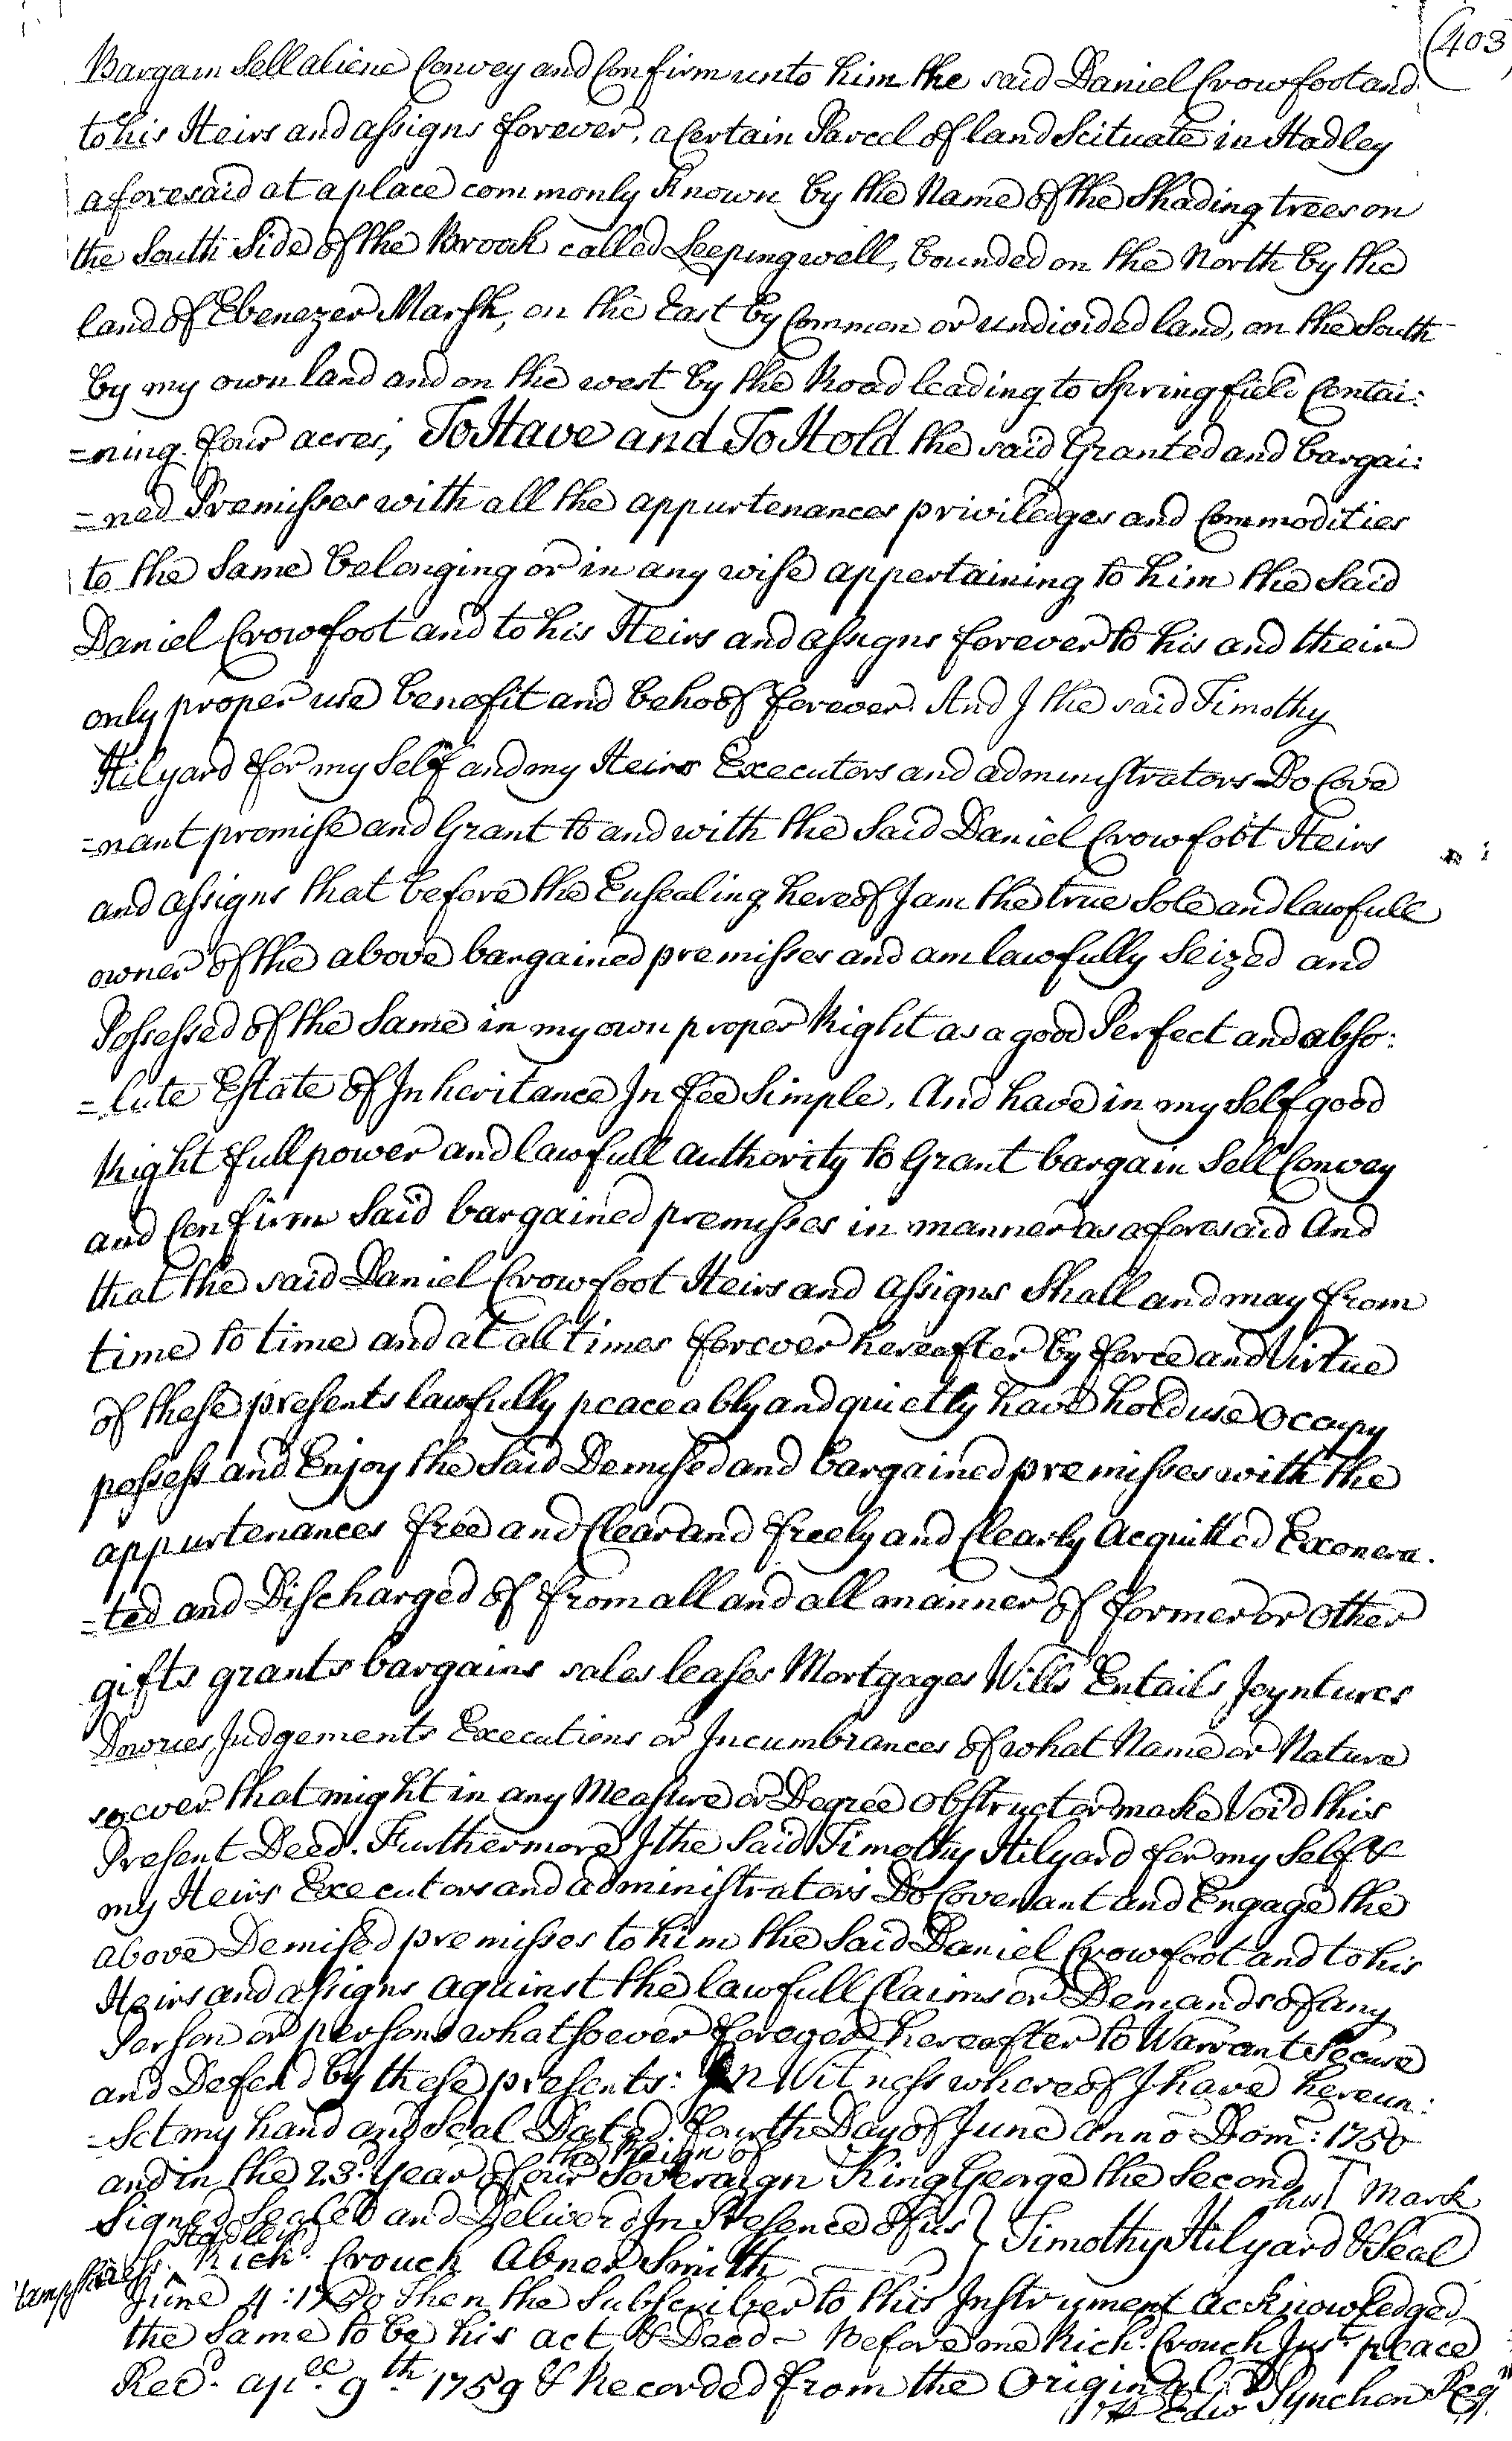 (403
Bargain Sell aliene Convey and Confirm unto him the said Daniel Crowfoot and
to his Heirs and assigns forever, a Certain Parcel of land Scituate in Hadley
aforesaid at a place commonly Known by the Name of the Shading trees on
the South Side of the Brook called Leepingwell, bounded on the North by the
land of Ebenezer Marsh, on the East by Common or undivided land, on the South
by my own land and on the west by the Road leading to Springfield Contai:
=ning four acres, To Have and To Hold the said Granted and bargai:
=ned Premisses with all the appurtenances priviledges and Commodities
to the Same belonging or in any wise appertaining to him the Said
Daniel Crowfoot and to his Heirs and assigns forever to his and their
only proper use benefit and behoof forever. And I the said Timothy
Hilyard for my Self and my Heirs Executors and administrators Do Cove
=nant promise and Grant to and with the Said Daniel Crowfoot Heirs
and assigns that before the Ensealing hereof I am the true Sole and lawfull
owner of the above bargained premisses and am lawfully Seized and
Possessed of the Same in my own proper Right as a good Perfect and abso:
=lute Estate of Inheritance In fee Simple. And have in my Self good
Right full power and lawfull authority to Grant bargain Sell Convey
and Confirm Said bargained premisses in manner as aforesaid And
that the said Daniel Crowfoot Heirs and assigns Shall and may from
time to time and at all times forever hereafter by force and Virtue
of these presents lawfully peaceably and quietly have hold use occupy
possess and Enjoy the Said Demised and bargained premisses with the
appurtenances free and Clear and freely and Clearly Acquitted Exonera.
=ted and Discharged of from all and all manner of former or other
gifts grants bargains sales leases Mortgages Wills Entails Joyntures
Dowries Judgements Executions or Incumbrances of what Name or Nature
soever that might in any Measure or Degree obstruct or make Void this
Present Deed. Furthermore I the Said Timothy Hilyard for my Self &
my Heirs Executors and administrators Do Covenant and Engage the
above Demised premisses to him the Said Daniel Crowfoot and to his
Heirs and assigns against the lawfull Claims or Demands of any
Person or persons whatsoever forever hereafter to Warrant Secure
and Defend by these presents: In Witness whereof I have hereun:
=Set my hand and Seal Dated fourth Day of June Anno Dom: 1750
and in the 23d. Year of the Reign of our Soveraign King George the Second
his Mark
Signed Sealed and Deliverd In Presence of us } Timothy Hilyard & Seal
Richd. Crouch Abner Smith
Hampshire ss. Hadley
June 4: 1750 Then the Subscriber to this Instrument acknowledged
the Same to be his act & Deed - Before me Richd. Crouch Just. peace
Recd. apll. 9th 1759 & Recorded from the Original
P Edwd Pynchon Regr.